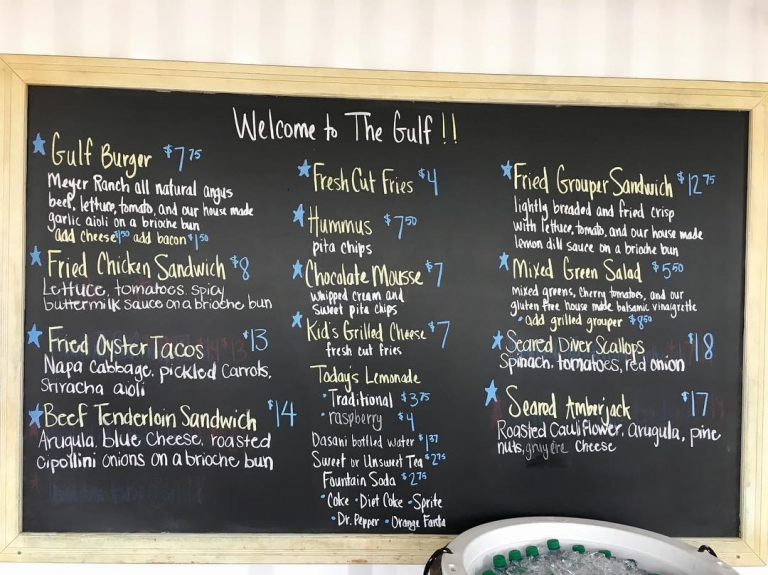 Welcome to The Gulf!!
Gulf Burger $7.75
Meyer Ranch all natural angus
beef, lettuce, tomato, and our house made
garlic aioli on a brioche bun
add cheese $1.50 add bacon $1.50
Fried Chicken Sandwich $8
Lettuce, tomatoes, spicy
buttermilk sauce on a brioche bun
Fried Oyster Tacos $13
Napa Cabbage, pickled Carrots,
Sriracha aioli
Beef Tenderloin Sandwich $14
Arugula, blue Cheese, roasted
Cipollini onions on a brioche bun
Fresh Cut Fries $4
Hummus $7.50
pita chips
Chocolate Mousse $7
whipped cream and
sweet pita chips
Kid's Grilled Cheese $7
fresh cut fries
Today's Lemonade
• Traditional $3.75
• raspberry $4
Dasani bottled water $1.37
Sweet or Unsweet Tea $2.75
Fountain Soda $2.75
• Coke • Diet Coke • Sprite
• Dr. Pepper • Orange Fanta
Fried Grouper Sandwich $12.75
lightly breaded and fried crisp
with lettuce, tomato, and our house made
lemon dill sauce on a brioche bun
Mixed Green Salad $5.50
mixed greens, Cherry tomatoes, and our
gluten free house made balsamic vinaigrette
• add grilled grouper $8.50
Seared Diver Scallops $18
Spinach, tomatoes, red onion
Seared Amberjack $17
Roasted Cauliflower, arugula, pine
nuts, gruyere cheese